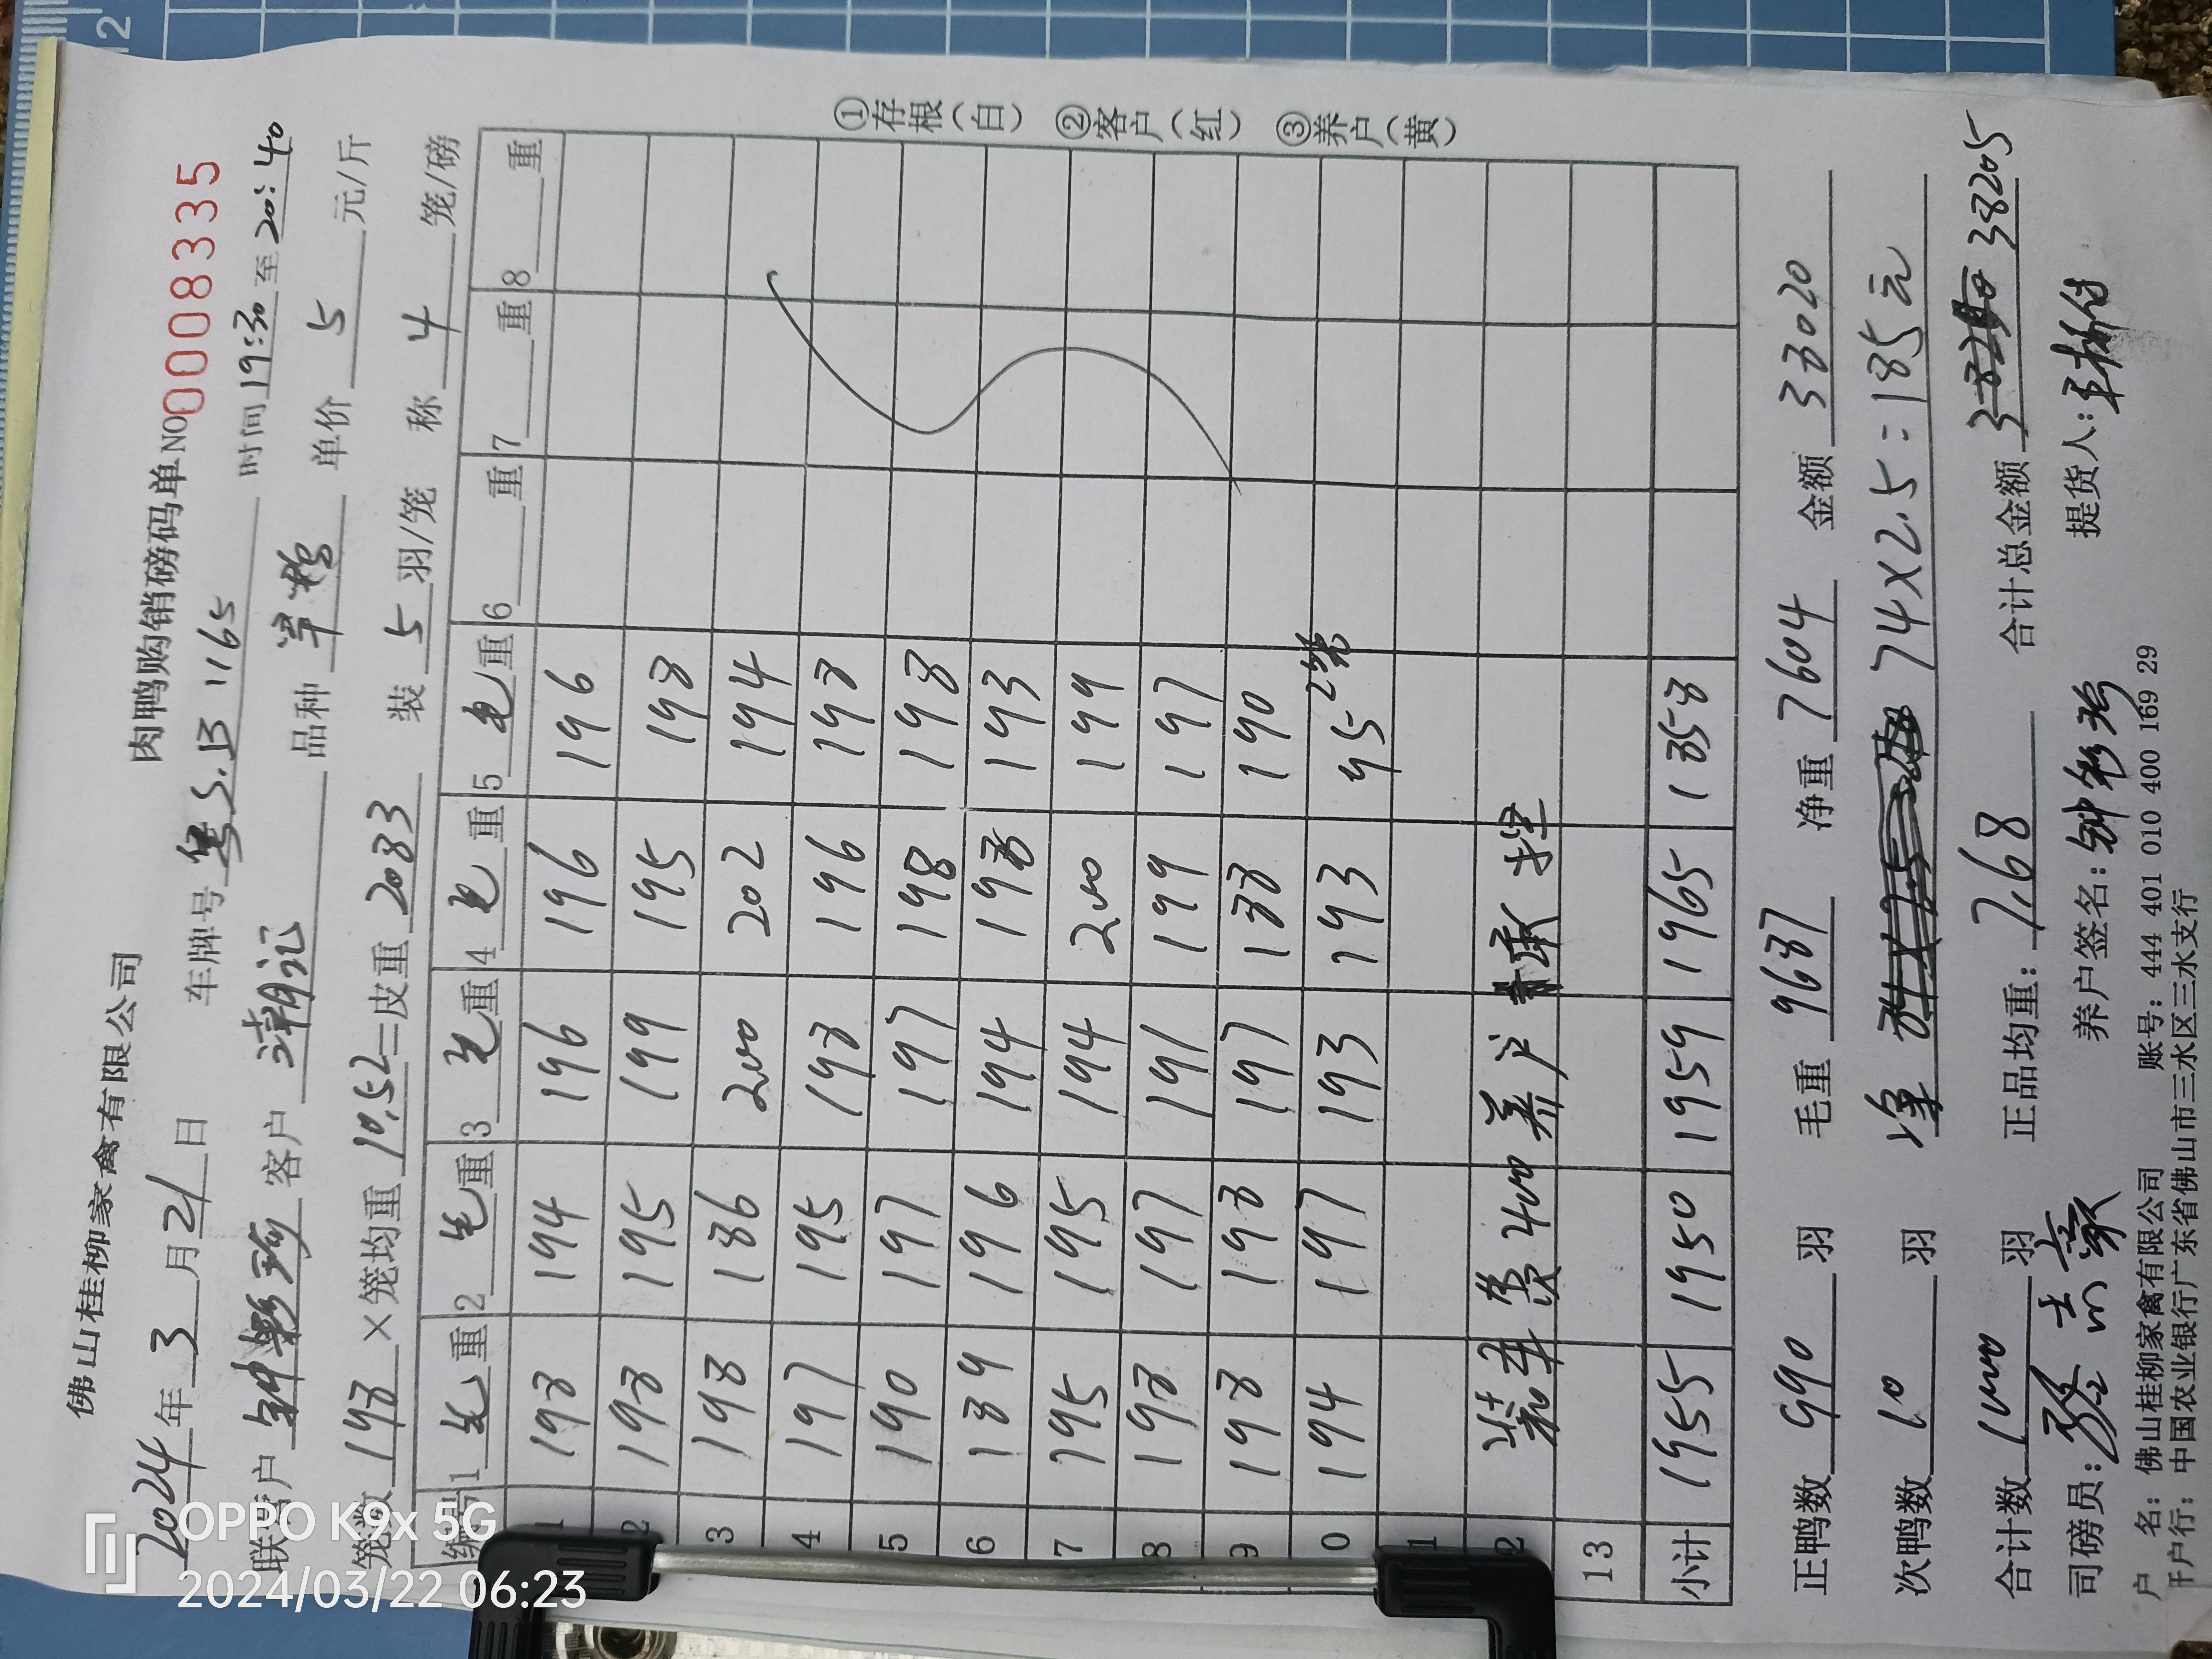 佛山桂柳家禽有限公司
肉鸭购销磅码单 NO0008335
2024年3月21日 车牌号粤S.B1165 时间19:30至20:40
联营户 客户 潮记 品种 单价 5 元/斤
笼数 198 ×笼均重 10.52=皮重 2083 装 5 羽/笼 称 4 笼/磅
编号 1毛重 2毛重 3毛重 4毛重 5毛重 6 重 7 重 8 重
1 198 194 196 196 196
2 198 195 199 195 198
3 198 186 200 202 194
4 197 195 198 196 198
5 190 197 197 198 198
6 189 196 194 198 193
7 195 195 194 200 199
8 198 197 191 199 197
9 198 198 197 188 190
0 194 197 193 193 95 2笼
1
2 装车费400养户承担
13
小计 1955 1950 1959 1965 1858
正鸭数 990 羽 毛重 9687 净重 7604 金额 38020
次鸭数 10 羽 净 74×2.5=185元
合计数 1000 羽 正品均重: 7.68 合计总金额 38205
司磅员: 养户签名: 提货人:
户 名: 佛山桂柳家禽有限公司 账号: 444 401 010 400 169 29
户行: 中国农业银行广东省佛山市三水区三水支行
①存根(白) ②客户(红) ③养户(黄)
12
OPPO K9x 5G
2024/03/22 06:23